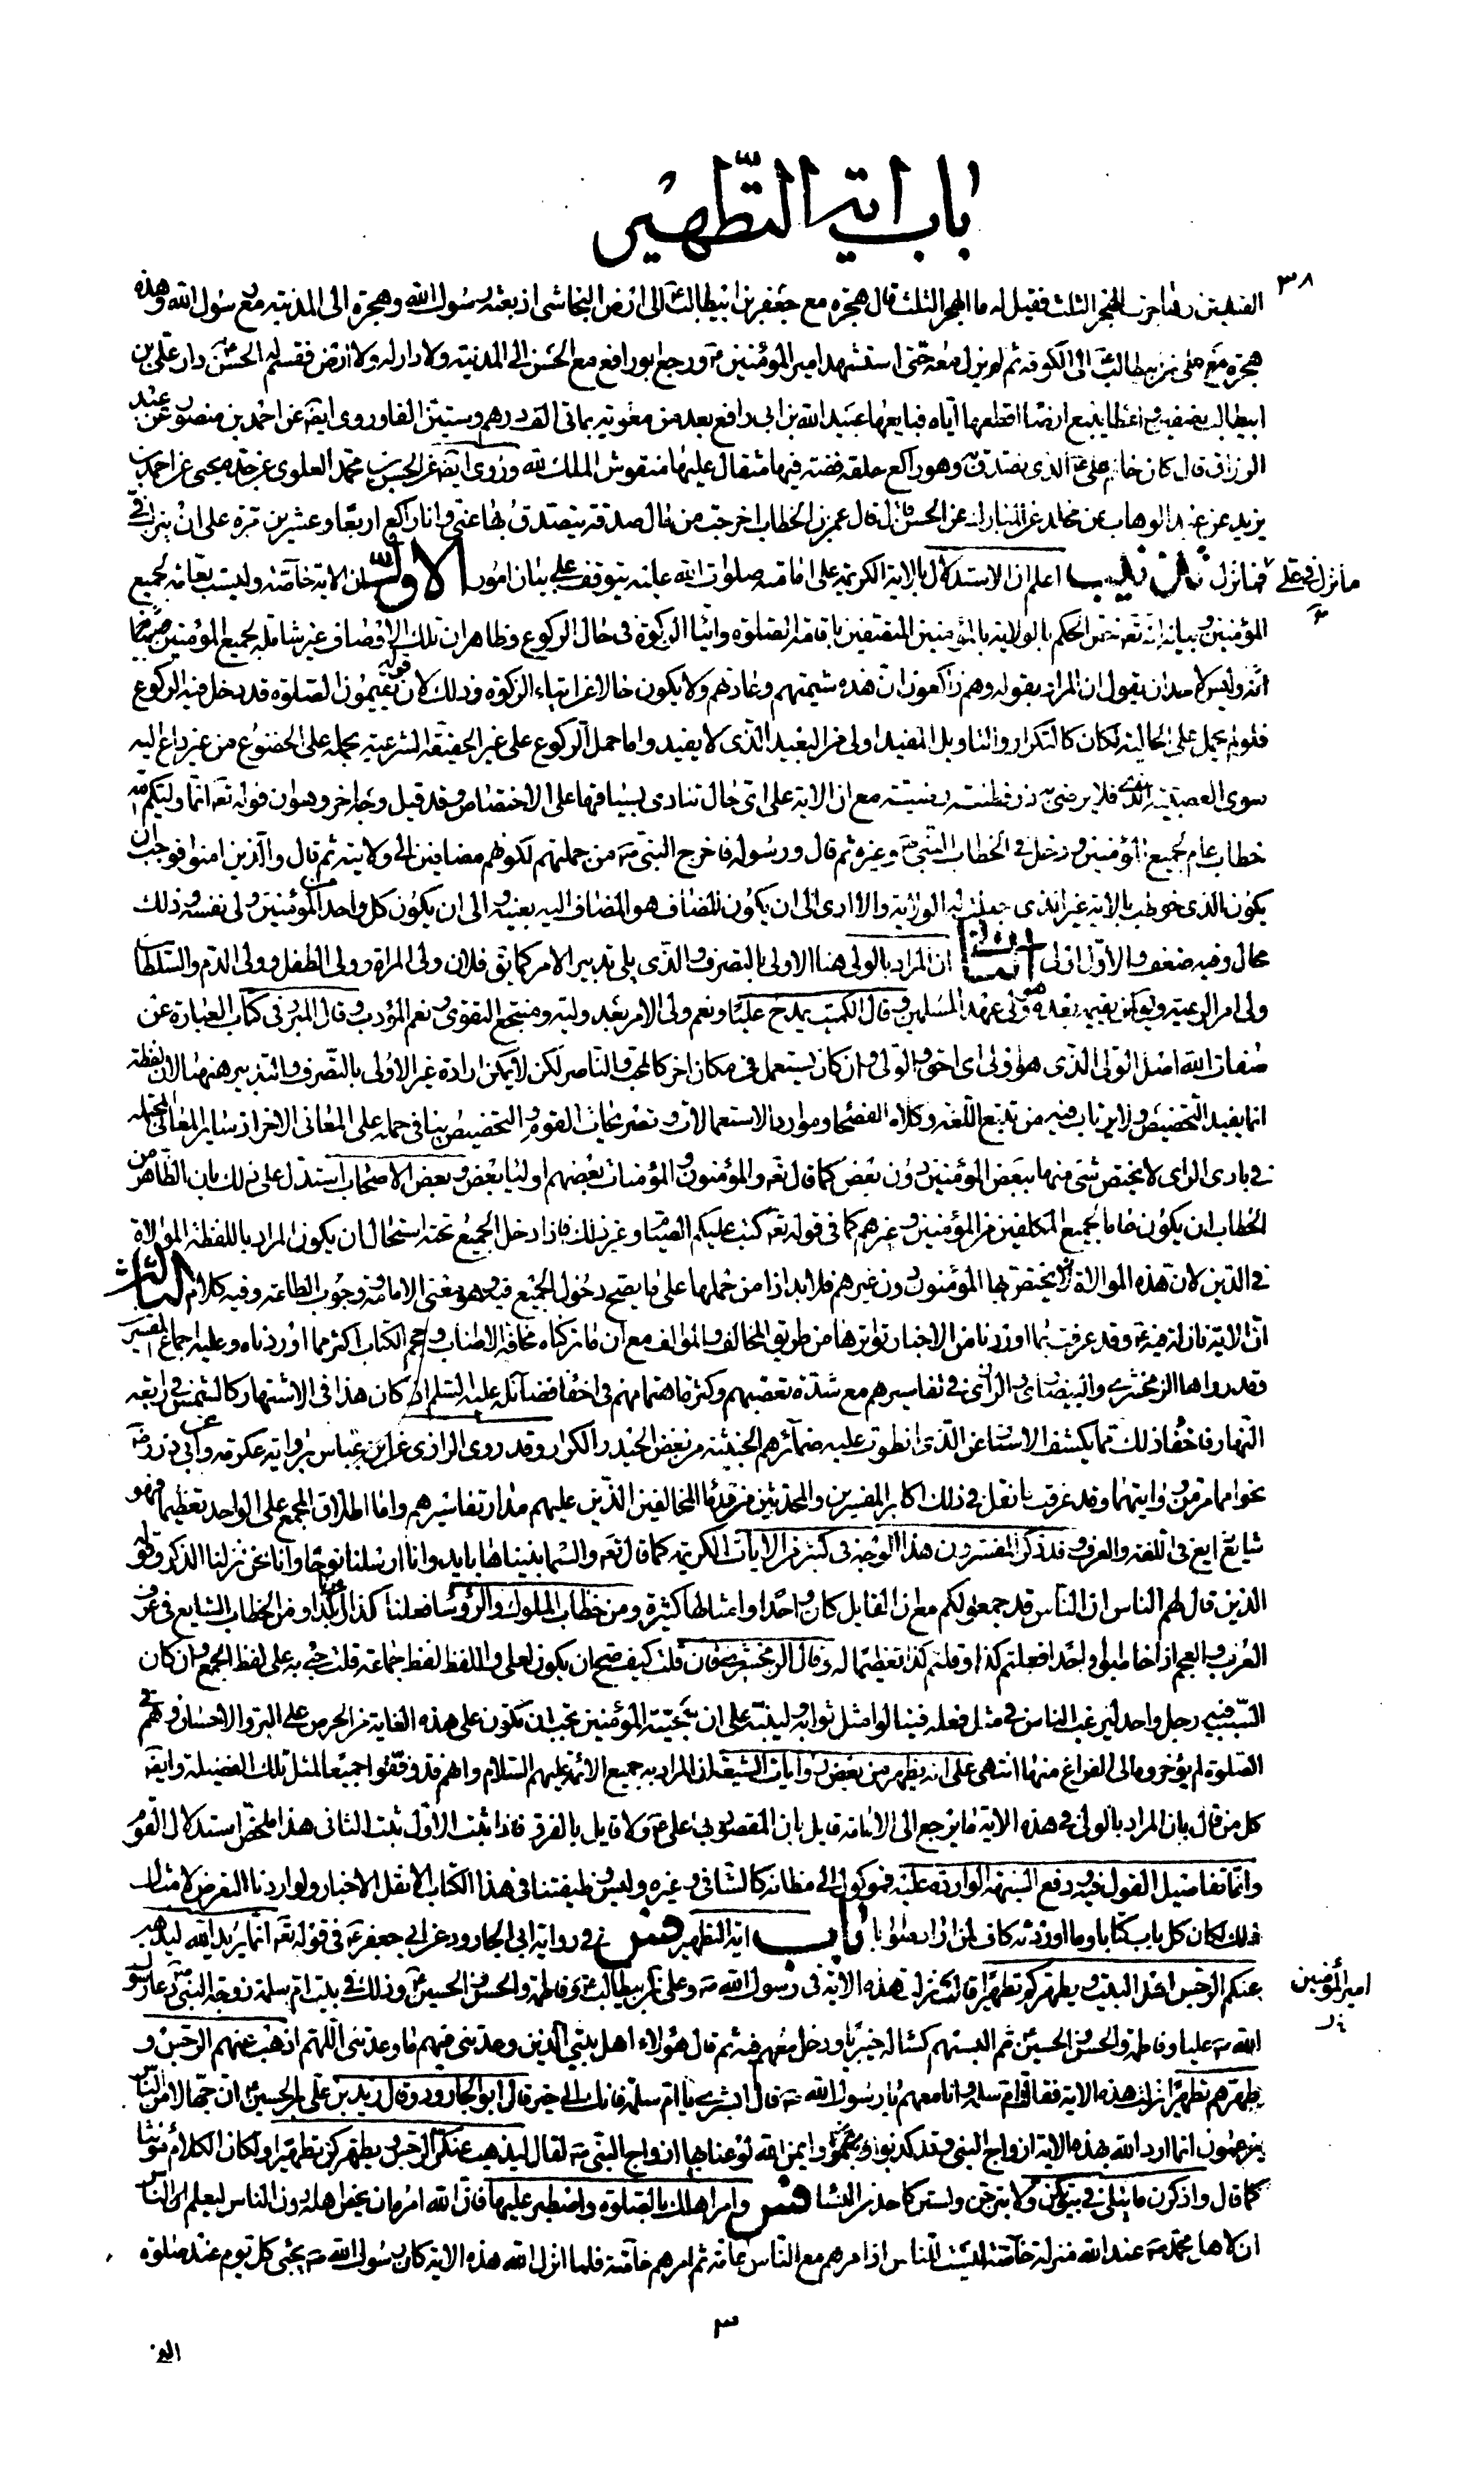 باب اية التطهير
٣٨
القبلتين وهاجرت الهجر الثلث فقيل له ما الهجر الثلث قال هجرة مع جعفر بن ابيطالب الى ارض النجاشى اذ بعثه رسول الله وهجرة الى المدينة مع رسول الله وهذه
هجرة مع على بن ابيطالب الى الكوفة ثم لم يزل معه حتى استشهد امير المؤمنين ورجع ابو رافع مع الحسن الى المدينة ولا دار له ولا ارض فقسم له الحسن دار على بن
ابيطالب بنصفين واعطاه بينبع ارضا اقطعها اياه فباعها عبيد الله بن ابى رافع بعد من معوية بمائتى الف درهم وستين الفا وروى ايضا عن احمد بن منصور عن عبد
الرزاق قال كان خاتم على الذى تصدق به وهو راكع حلقة فضة فيها مثقال عليها منقوش الملك لله وروى ايضا عن الحسن بن محمد العلوى عن جده يحيى عن احمد بن
يزيد عن عبد الوهاب عن مخلد عن المبارك عن الحسن قال قال عمر بن الخطاب اخرجت من مالى صدقة يتصدق بها عنى وانا راكع اربعا وعشرين مرة على ان ينزل فى
ما نزل فى على فما نزل تذنيب اعلم ان الاستدلال بالاية الكريمة على امامته صلوات الله عليه يتوقف على بيان امور الاول ان الاية خاصة وليست بعامة لجميع
المؤمنين وبيانه انه تعالى خص الحكم بالولاية بالمؤمنين المتصفين باقامة الصلوة وايتاء الزكوة فى حال الركوع وظاهر ان تلك الاوصاف غير شاملة لجميع المؤمنين
انه وليس لاحد ان يقول ان المراد بقوله وهم راكعون ان هذه شيمتهم وعادتهم ولا يكون حالا عن ايتاء الزكوة وذلك لان قوله يقيمون الصلوة قد دخل فيه الركوع
فلو لم يحمل على الحالية لكان كالتكرار والتاويل المفيد اولى من البعيد الذى لا يفيد واما حمل الركوع على غير الحقيقة الشرعية بحمله على الخضوع من غير داع اليه
سوى العصبية فلا يرضى به ذو فطنة رضية مع ان الاية على اى حال تنادى بسياقها على الاختصاص وقد قيل وجه اخر وهو ان قوله تعالى انما وليكم الله
خطاب عام لجميع المؤمنين ودخل فى الخطاب النبى وغيره ثم قال ورسوله فاخرج النبى من جملتهم لكونهم مضافين الى ولايته ثم قال والذين امنوا فوجب ان
يكون الذى خوطب بالاية غير الذى جعلت له الولاية والا ادى الى ان يكون المضاف هو المضاف اليه بعينه والى ان يكون كل واحد من المؤمنين ولى نفسه وذلك
محال وفيه ضعف والاول اولى الثانى ان المراد بالولى هنا الاولى بالتصرف والذى يلى تدبير الامر كما يقال فلان ولى المراة وولى الطفل وولى الدم والسلطان
ولى امر الرعية ويقال لمن يقيمه بعده هو ولى عهد المسلمين وقال الكميت يمدح عليا ونعم ولى الامر بعد وليه ومنتجع التقوى ونعم المؤدب وقال المبرد فى كتاب العبارة عن
صفات الله اصل الولى الذى هو اولى اى احق والولى وان كان يستعمل فى مكان اخر كالمحب والناصر لكن لا يمكن ارادة غير الاولى بالتصرف والتدبير هيهنا لان لفظة
انما يفيد التخصيص ولا يرتاب فيه من تتبع اللغة وكلام الفصحا وموارد الاستعمالات وتصريحات القوم والتخصيص ينافى حمله على المعانى الاخر اذ سائر المعانى المحتملة
فى بادى الراى لا يختص شئ منها ببعض المؤمنين دون بعض كما قال تعالى والمؤمنون والمؤمنات بعضهم اولياء بعض وبعض الاصحاب استدل على ذلك بان الظاهر من
الخطاب ان يكون عاما لجميع المكلفين من المؤمنين وغيرهم كما فى قوله تعالى كتب عليكم الصيام وغير ذلك فاذا دخل الجميع تحته استحال ان يكون المراد باللفظة الموالاة
فى الدين لان هذه الموالاة يختص بها المؤمنون دون غيرهم فلا بد اذا من حملها على ما يصح دخول الجميع فيه وهو معنى الامامة ووجوب الطاعة وفيه كلام الثالث
ان الاية نازلة فيه وقد عرفت بما اوردنا من الاخبار تواترها من طريق المخالف والمؤالف مع ان ما تركناه مخافة الاطناب وحجم الكتاب اكثر مما اوردناه وعليه اجماع المفسرين
وقد رواها الزمخشرى والبيضاوى والرازى فى تفاسيرهم مع شدة تعصبهم وكثرة اهتمامهم فى اخفاء فضائله عليه السلم اذ كان هذا فى الاشتهار كالشمس فى رابعة
النهار فاخفاء ذلك مما يكشف الاستار عن الذى انطوت عليه ضمائرهم الخبيثة من بغض الحيدر الكرار وقد روى الرازى عن ابن عباس برواية عكرمة وعن ابى ذر
نحوا مما مر من روايتهما وقد عرفت ما نقل فى ذلك اكابر المفسرين والمحدثين من قدماء المخالفين الذين عليهم مدار تفاسيرهم واما اطلاق الجمع على الواحد تعظيما فهو
شايع ذايع فى اللغة والعرف وقد ذكر المفسرون هذا الوجه فى كثير من الايات الكريمة كما قال تعالى والسماء بنيناها بايد وانا ارسلنا نوحا وانا نحن نزلنا الذكر وقوله
الذين قال لهم الناس ان الناس قد جمعوا لكم مع ان القايل كان واحدا وامثالها كثيرة ومن خطاب الملوك والرؤساء فعلنا كذا وامرنا بكذا ومن الخطاب الشايع فى عرف
العرب والعجم اذا خاطبوا واحدا فعلتم كذا وقلتم كذا تعظيما له وقال الزمخشرى فان قلت كيف صح ان يكون لعلى واللفظ لفظ جماعة قلت جئ به على لفظ الجمع وان كان
السبب فيه رجل واحد ليرغب الناس فى مثل فعله فينالوا مثل ثوابه ولينبه على ان سجية المؤمنين يجب ان تكون على هذه الغاية من الحرص على البر والاحسان وهم فى
الصلوة لم يؤخروه الى الفراغ منها انتهى على انه يظهر من بعض روايات الشيعة ان المراد به جميع الائمة عليهم السلام وانهم قد وفقوا جميعا لمثل تلك الفضيلة وايضا
كل من قال بان المراد بالولى فى هذه الاية ما يرجع الى الامامة قايل بان المقصود به على ولا قايل بالفرق فاذا ثبت الاول ثبت الثانى هذا ملخص استدلال القوم
واما تفاصيل القول فيه ودفع الشبهة الواردة عليه فموكول الى مظانه كالشافى وغيره وليس وظيفتنا فى هذا الكتاب الا نقل الاخبار ولو اردنا التعرض لامثال
ذلك لكان كل باب كتابا وما اوردته كاف لمن اراد صوابا باب اية التطهير فس فى رواية ابى الجارود عن ابى جعفر فى قوله تعالى انما يريد الله ليذهب
عنكم الرجس اهل البيت ويطهركم تطهيرا قال نزلت هذه الاية فى رسول الله وعلى بن ابيطالب وفاطمة والحسن والحسين وذلك فى بيت ام سلمة زوجة النبى دعا رسول
امير المؤمنين
الله عليا وفاطمة والحسن والحسين ثم البسهم كساء له خيبريا ودخل معهم فيه ثم قال هؤلاء اهل بيتى الذين وعدتنى فيهم ما وعدتنى اللهم اذهب عنهم الرجس و
طهرهم تطهيرا نزلت هذه الاية فقالت ام سلمة وانا معهم يا رسول الله قال ابشرى يا ام سلمة فانك الى خير قال ابو الجارود وقال زيد بن على بن الحسين ان جهالا من الناس
يزعمون انما اراد الله بهذه الاية ازواج النبى وقد كذبوا واثموا وايم الله لو عنا بها ازواج النبى لقال ليذهب عنكن الرجس ويطهركن تطهيرا ولكان الكلام مؤنثا
كما قال واذكرن ما يتلى فى بيوتكن ولا تبرجن ولستن كاحد من النساء فس وامر اهلك بالصلوة واصطبر عليها فان الله امره ان يخص اهله دون الناس ليعلم الناس
ان لاهل محمد عند الله منزلة خاصة ليست للناس اذ امرهم مع الناس عامة ثم امرهم خاصة فلما انزل الله هذه الاية كان رسول الله يجئ كل يوم عند صلوة
٣